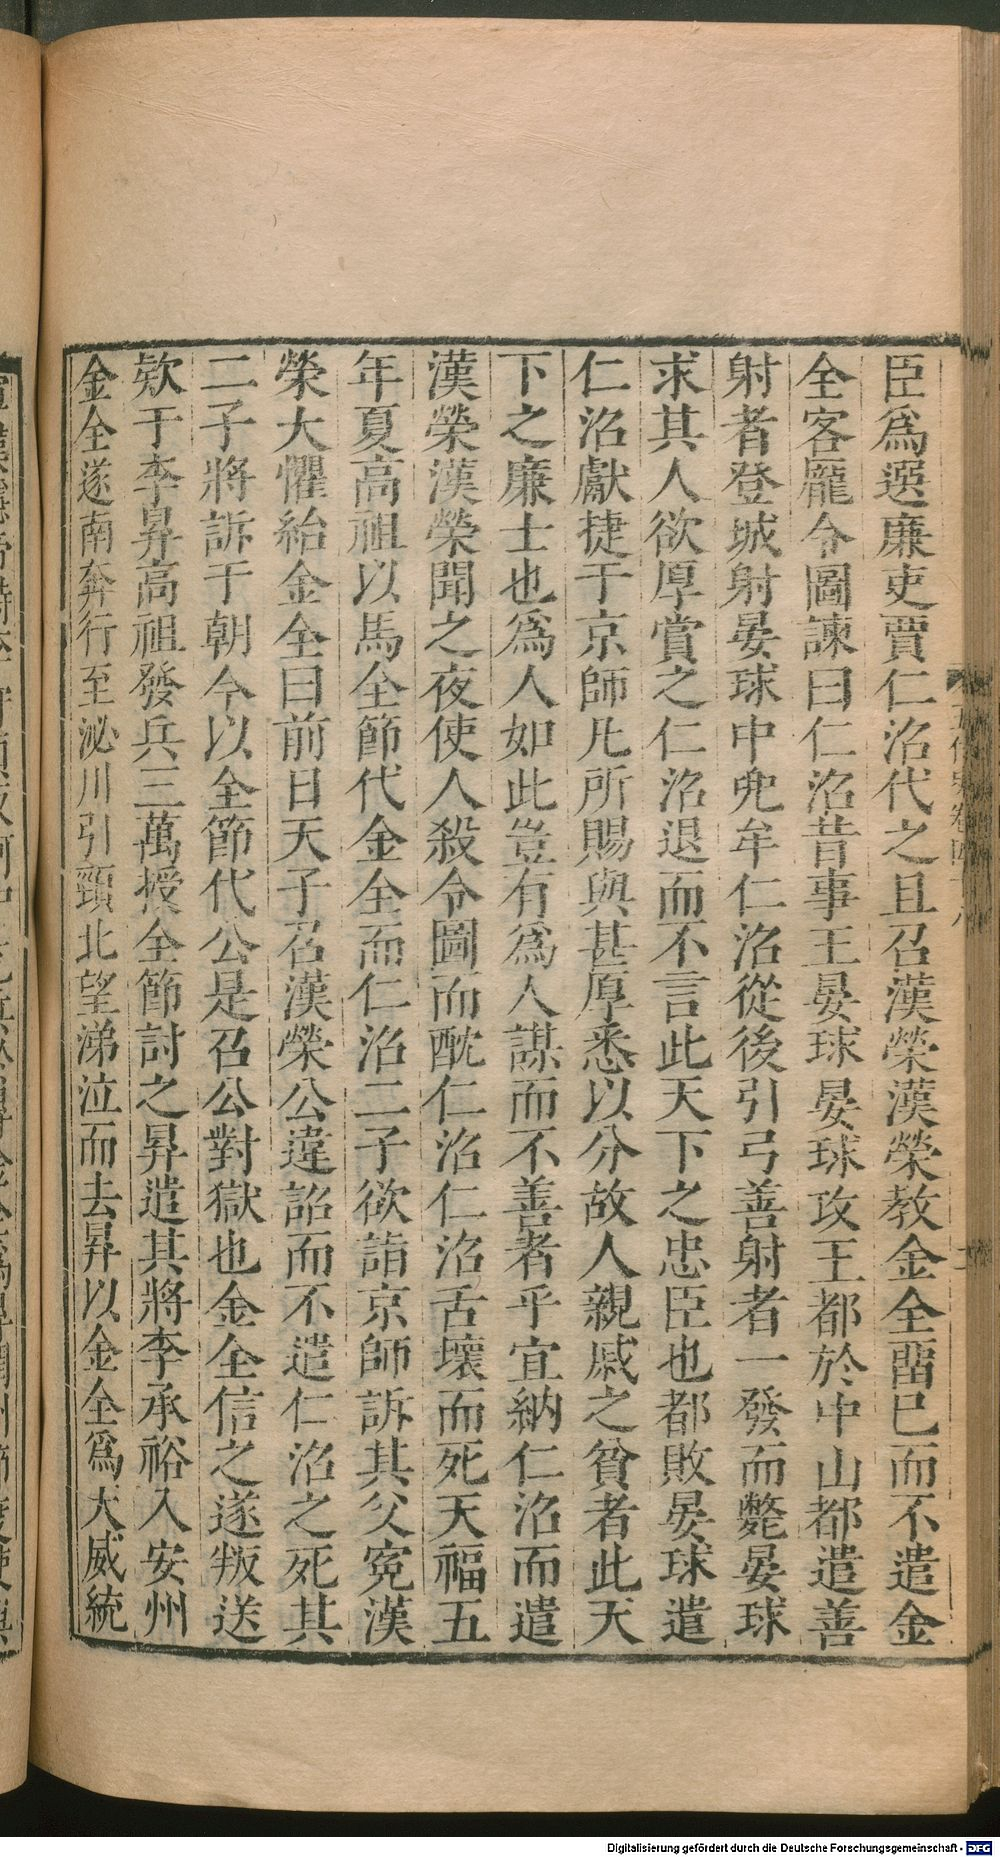 臣爲選廉吏賈仁沼代之且召漢榮漢榮教金全畱巳而不遣金
全客龎令圖諫曰仁沼昔事王晏球晏球攻王都於中山都遣善
射者登城射晏球中兜牟仁沼從後引弓善射者一發而斃晏球
求其人欲厚賞之仁沼退而不言此天下之忠臣也都敗晏球遣
仁沼獻捷于京師凡所賜與甚厚悉以分故人親戚之貧者此天
下之廉士也爲人如此豈有爲人謀而不善者乎宜納仁沼而遣
漢榮漢榮聞之夜使人殺令圖而酖仁沼仁沼舌壞而死天福五
年夏高祖以馬全節代金全而仁沼二子欲詣京師訴其父寃漢
榮大懼紿金全曰前日天子召漢榮公違詔而不遣仁沼之死其
二子將訴于朝今以全節代公是召公對獄也金全信之遂叛送
欵于李昪高祖發兵三萬授全節討之昪遣其將李承裕入安州
金全遂南奔行至泌川引頸北望涕泣而去昪以金全爲天威統
五代史卷四十八
Digitalisierung gefördert durch die Deutsche Forschungsgemeinschaft - DFG